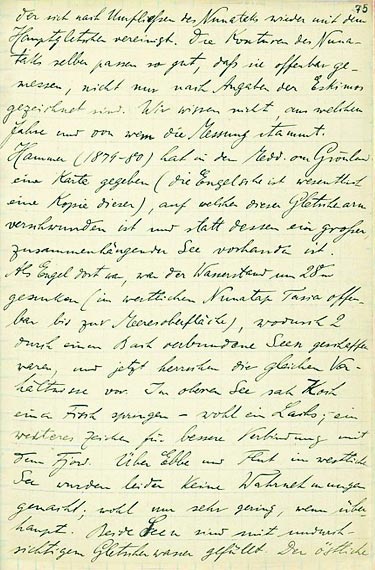 75
der sich nach Umfließen des Nunataks wieder mit dem
Hauptgletscher vereinigt. Die Konturen des Nuna-
taks selber passen so gut, daß sie offenbar ge-
messen, nicht nur nach Angaben der Eskimos
gezeichnet sind. Wir wissen nicht, aus welchem
Jahre und von wem die Messung stammt.
Hammer (1879-80) hat in den Medd. om Grönland
eine Karte gegeben (die Engelsche ist wesentlich
eine Kopie dieser), auf welcher dieser Gletscherarm
verschwunden ist und statt dessen ein großer
zusammenhängender See vorhanden ist.
Als Engel dort war, war der Wasserstand um 28 m
gesunken (im westlichen Nunatap Tasia offen-
bar bis zur Meeresoberfläche), wodurch 2
durch einen Bach verbundene Seen geschaffen
waren, und jetzt herrschen die gleichen Ver-
hältnisse vor. Im oberen See sah Koch
einen Fisch springen – wohl ein Lachs; ein
weiteres Zeichen für bessere Verbindung mit
dem Fjord. Über Ebbe und Flut im westlichen
See wurden leider keine Wahrnehmungen
gemacht; wohl nur sehr gering, wenn über-
haupt. Beide Seen sind mit undurch-
sichtigem Gletscherwasser gefüllt. Der östliche